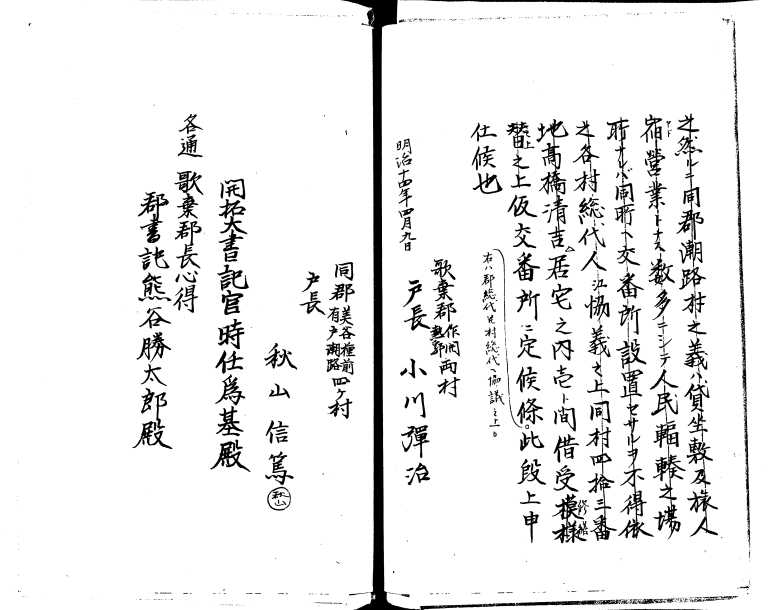 之然ルニ同郡潮路村之義ハ貸坐敷及旅人
宿営業ヲナス者数多ニシテ人民輻輳之場
所ナレバ同所ヘ交番所設置セサルヲ不得依
之各村総代人江協義之上同村四拾三番
地高橋清吉居宅之内壱ト間借受模様
替之上仮交番所ニ定候條此段上申
仕候也
右ハ郡総代及村総代ヘ協議之上
明治十四年四月九日
歌棄郡作開熱郛両村
戸長 小川彈治
同郡美谷種前有戸潮路四ケ村
戸長
秋山信篤
秋山
開拓大書記官時任爲基殿
各通 歌棄郡長心得
郡書記熊谷勝太郎殿